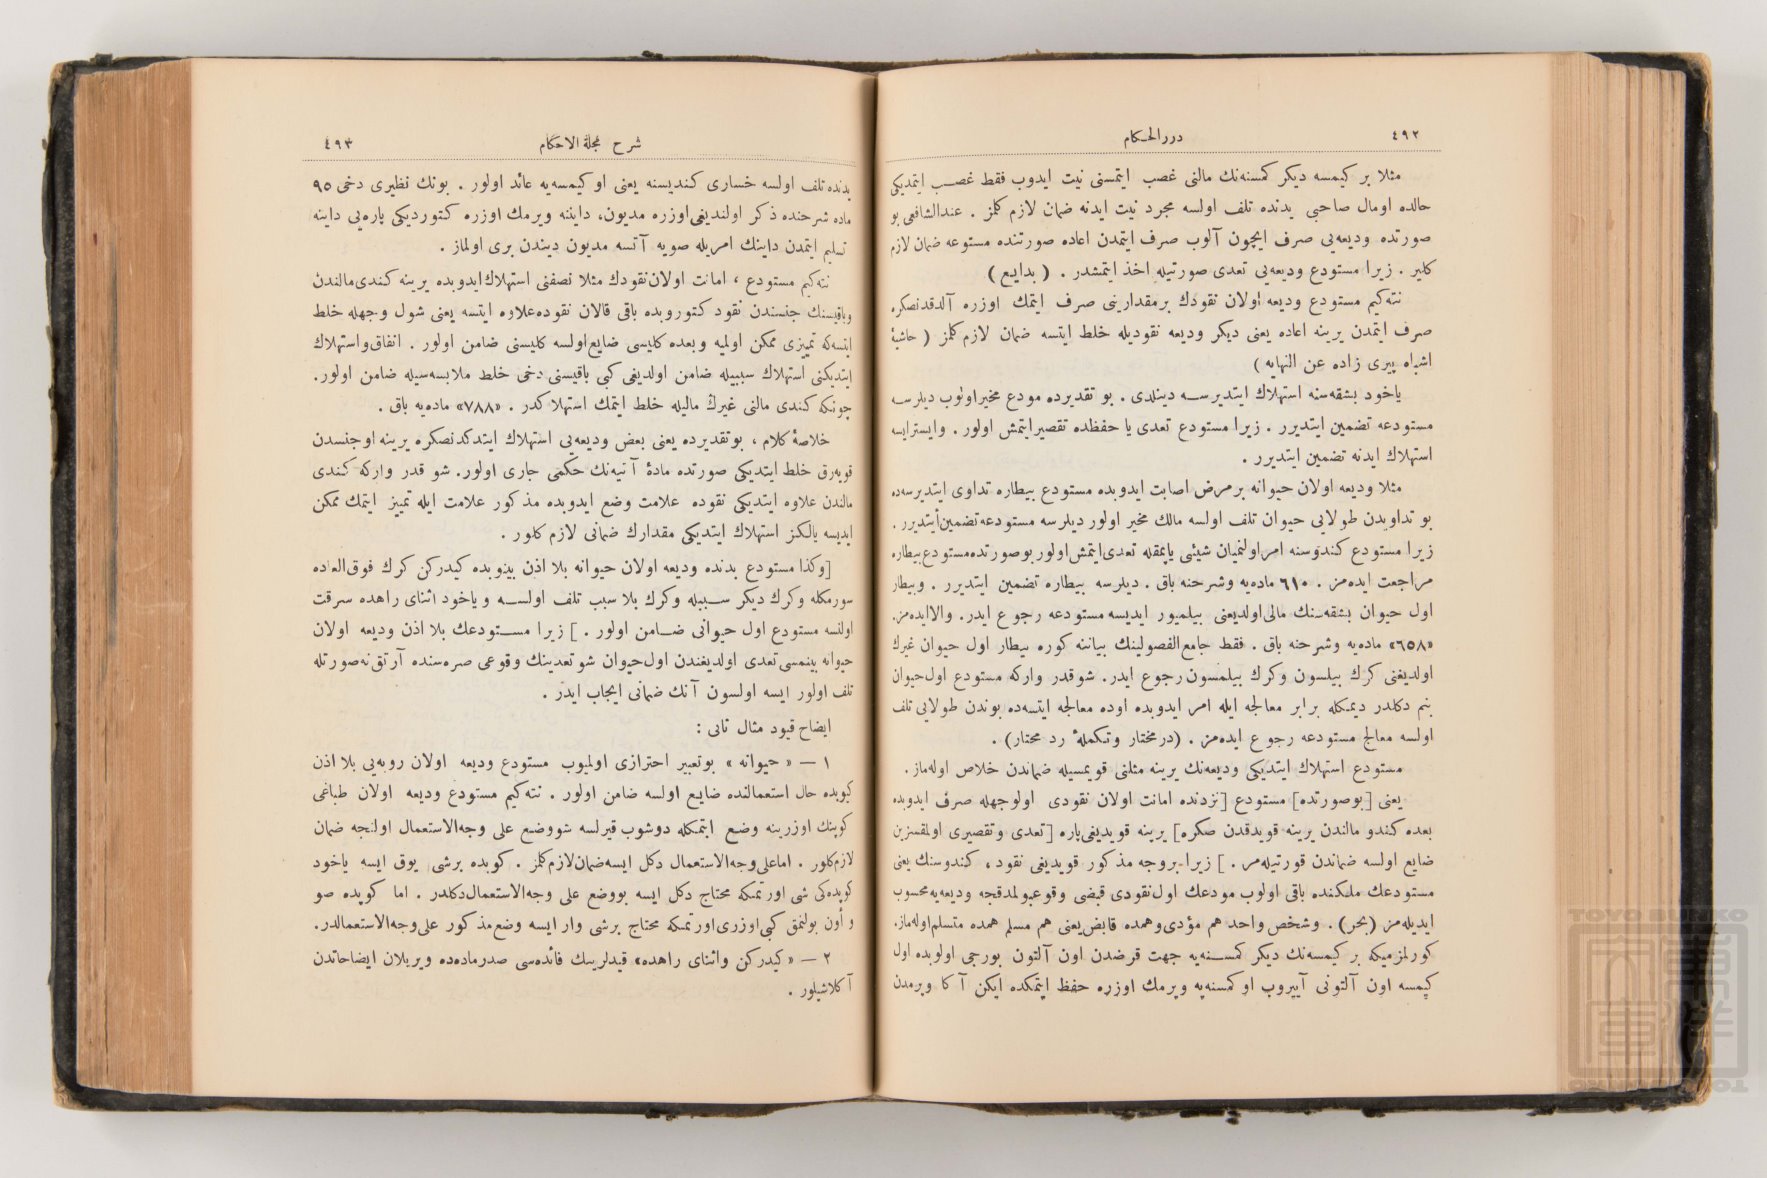 ٤٩٢
دررالحكام
مثلا بر كيمسه ديكر كمسنه‌نك مالنى غصب ايتمسنى نيت ايدوب فقط غصب ايتمديكى
حالده اومال صاحبى يدنده تلف اولسه مجرد نيت ايدنه ضمان لازم كلمز . عندالشافعى بو
صورتده وديعه‌يى صرف ايچون آلوب صرف ايتمدن اعاده صورتنده مستوعه ضمان لازم
كلير . زيرا مستودع وديعه‌يى تعدى صورتيله اخذ ايتمشدر . ( بدايع )
نته‌كيم مستودع وديعه اولان نقودك برمقدارينى صرف ايتمك اوزره آلدقدنصكره
صرف ايتمدن يرينه اعاده يعنى ديكر وديعه نقوديله خلط ايتسه ضمان لازم كلمز ( حاشيهٔ
اشباه پيرى زاده عن النهايه )
ياخود بشقه‌سنه استهلاك ايتديرسه دينلدى . بو تقديرده مودع مخيراولوب ديلرسه
مستودعه تضمين ايتديرر . زيرا مستودع تعدى يا حفظده تقصيرايتمش اولور . وايسترايسه
استهلاك ايدنه تضمين ايتديرر .
مثلا وديعه اولان حيوانه برمرض اصابت ايدوبده مستودع بيطاره تداوى ايتديرسه‌ده
بو تداويدن طولايى حيوان تلف اولسه مالك مخير اولور ديلرسه مستودعه تضمين ايتديرر .
زيرا مستودع كندوسنه امر اولنميان شيئى ياپمقله تعدى ايتمش اولور بو صورتده مستودع بيطاره
مراجعت ايده‌مز . ٦١٠ ماده‌يه وشرحنه باق . ديلرسه بيطاره تضمين ايتديرر . وبيطار
اول حيوان بشقه‌سنك مالى اولديغنى بيلميور ايديسه مستودعه رجوع ايدر . والا ايده‌مز.
«٦٥٨» ماده‌يه وشرحنه باق . فقط جامع الفصولينك بياننه كوره بيطار اول حيوان غيرك
اولديغنى كرك بيلسون وكرك بيلمسون رجوع ايدر. شوقدر واركه مستودع اول حيوان
بنم دكلدر ديمكله برابر معالجه ايله امر ايدوبده اوده معالجه ايتسه‌ده بوندن طولايى تلف
اولسه معالج مستودعه رجوع ايده‌مز . (درمختار وتكملهٔ رد محتار) .
مستودع استهلاك ايتديكى وديعه‌نك يرينه مثلنى قويمسيله ضماندن خلاص اوله‌ماز .
يعنى [بوصورتده] مستودع [نزدنده امانت اولان نقودى اولوجهله صرف ايدوبده
بعده كندو مالندن يرينه قويدقدن صكره] يرينه قويديغى پاره [تعدى وتقصيرى اولمقسزين
ضايع اولسه ضماندن قورتيله‌مز . ] زيرا بروجه مذكور قويديغى نقود ، كندوسنك يعنى
مستودعك ملكنده باقى اولوب مودعك اول نقودى قبضى وقوعبولمدقجه وديعه‌يه محسوب
ايديله‌مز (بحر) . وشخص واحد هم مؤدى وهمده قابض يعنى هم مسلم همده متسلم اوله‌ماز.
كورلمزميكه بر كيمسه‌نك ديكر كمسنه‌يه جهت قرضدن اون آلتون بورجى اولوبده اول
كيمسه اون آلتونى آييروب او كمسنه‌يه ويرمك اوزره حفظ ايتمكده ايكن آكا ويرمدن
شرح مجلة الاحكام
٤٩٣
يدنده تلف اولسه خسارى كنديسنه يعنى او كيمسه‌يه عائد اولور . بونك نظيرى دخى ٩٥
ماده شرحنده ذكر اولنديغى اوزره مديون، داينه ويرمك اوزره كتورديكى پاره‌يى داينه
تسليم ايتمدن داينك امريله صويه آتسه مديون ديندن برى اولماز .
نته‌كيم مستودع ، امانت اولان نقودك مثلا نصفنى استهلاك ايدوبده يرينه كندى مالندن
وباقيسنك جنسندن نقود كتوروبده باقى قالان نقوده علاوه ايتسه يعنى شول وجهله خلط
ايتسه‌كه تمييزى ممكن اولميه وبعده كليسى ضايع اولسه كليسنى ضامن اولور . انفاق واستهلاك
ايتديكنى استهلاك سببيله ضامن اولديغى كبى باقيسنى دخى خلط ملابسه‌سيله ضامن اولور.
چونكه كندى مالنى غيرك ماليله خلط ايتمك استهلاكدر . «٧٨٨» ماده‌يه باق .
خلاصهٔ كلام ، بوتقديرده يعنى بعض وديعه‌يى استهلاك ايتدكدنصكره يرينه اوجنسدن
قويه‌رق خلط ايتديكى صورتده مادهٔ آتيه‌نك حكمى جارى اولور. شو قدر واركه كندى
مالندن علاوه ايتديكى نقوده علامت وضع ايدوبده مذكور علامت ايله تمييز ايتمك ممكن
ايديسه يالكز استهلاك ايتديكى مقدارك ضمانى لازم كلور .
[وكذا مستودع يدنده وديعه اولان حيوانه بلا اذن بينوبده كيدركن كرك فوق العاده
سورمكله وكرك ديكر سببيله وكرك بلا سبب تلف اولسه و ياخود اثناى راهده سرقت
اولنسه مستودع اول حيوانى ضامن اولور . ] زيرا مستودعك بلا اذن وديعه اولان
حيوانه بينمسى تعدى اولديغندن اول حيوان شو تعدينك وقوعى صره‌سنده آرتق نه صورتله
تلف اولور ايسه اولسون آنك ضمانى ايجاب ايدر .
ايضاح قيود مثال ثانى :
١ — « حيوانه » بوتعبير احترازى اولميوب مستودع وديعه اولان روبه‌يى بلا اذن
كيوبده حال استعمالنده ضايع اولسه ضامن اولور . نته‌كيم مستودع وديعه اولان طباغى
كوپنك اوزرينه وضع ايتمكله دوشوب قيرلسه شووضع على وجه الاستعمال اولنجه ضمان
لازم كلور . اما على وجه الاستعمال دكل ايسه ضمان لازم كلمز . كوپده برشى يوق ايسه ياخود
كوپده‌كى شى اورتمكه محتاج دكل ايسه بووضع على وجه الاستعمال دكلدر . اما كوپده صو
و أون بولنمق كبى اوزرى اورتمكه محتاج برشى وار ايسه وضع مذكور على وجه الاستعمالدر.
٢ — « كيدركن واثناى راهده» قيدلرينك فائده‌سى صدرماده‌ده ويريلان ايضاحاتدن
آكلاشيلور .
TOYO BUNKO